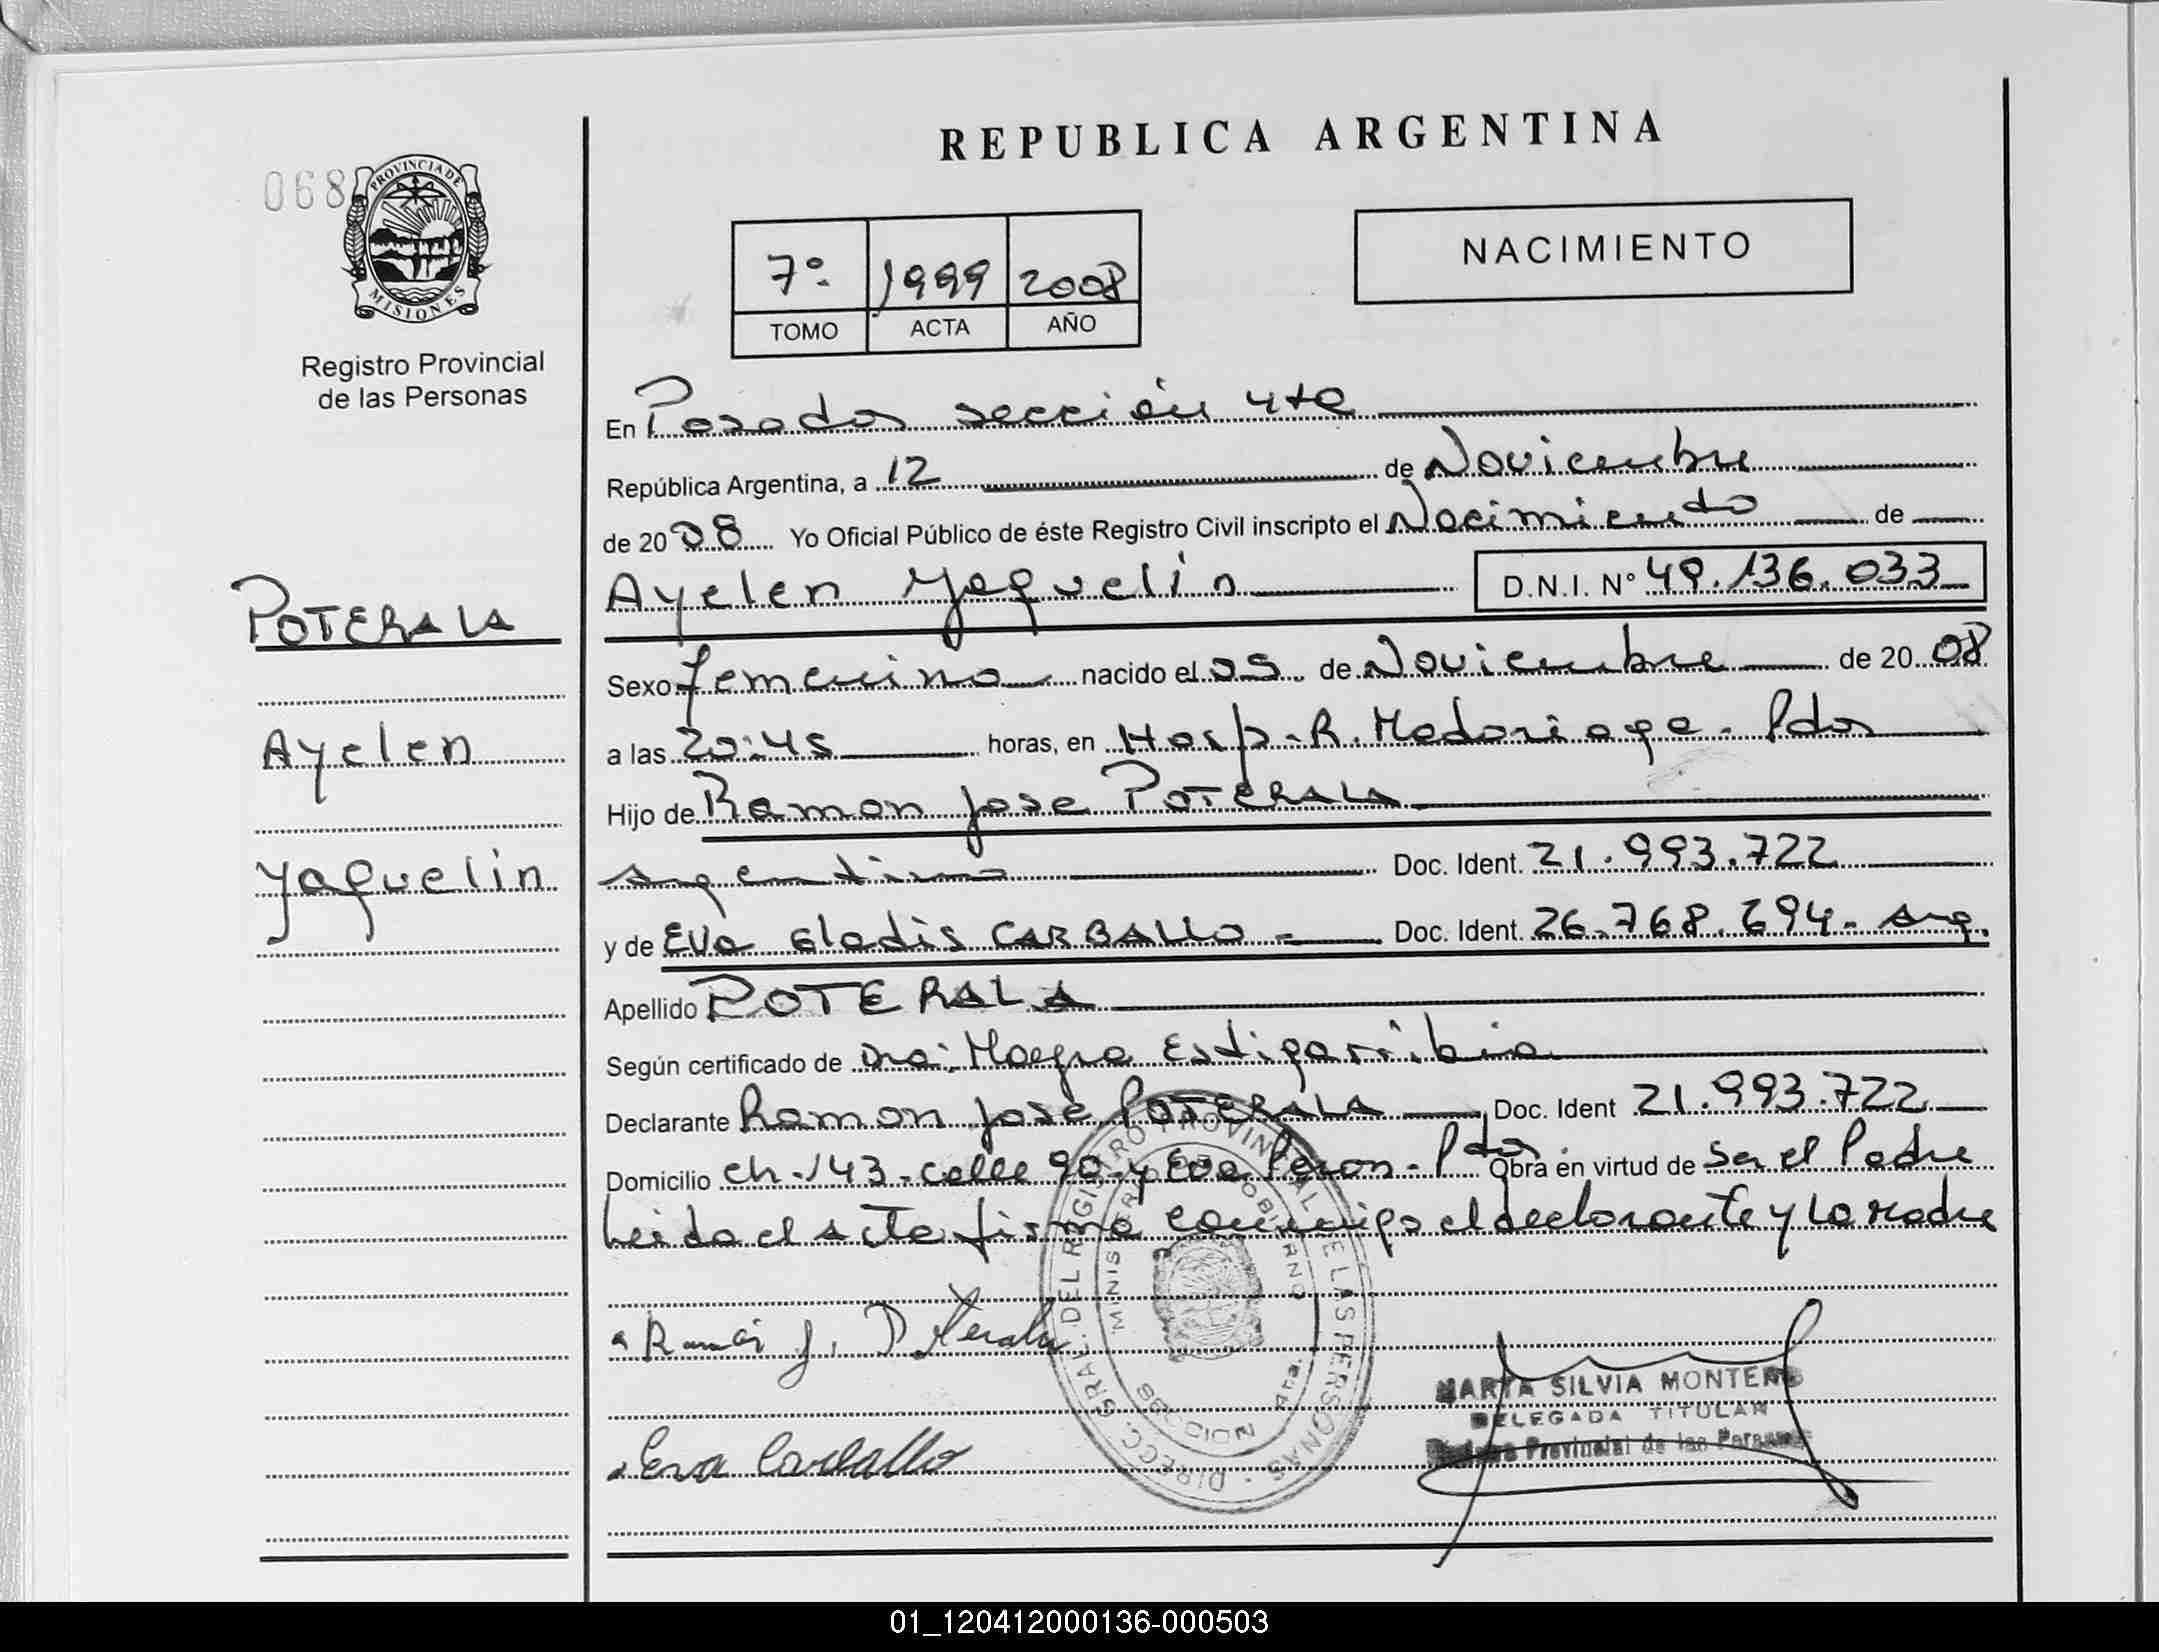 REPUBLICA ARGENTINA
068
PROVINCIA DE
MISIONES
Registro Provincial
de las Personas
7º
1999
2008
TOMO
ACTA
AÑO
NACIMIENTO
En Posadas sección 4ta
República Argentina, a 12 de Noviembre
de 2008 Yo Oficial Público de éste Registro Civil inscripto el Nacimiento de
Ayelen Yaquelin D.N.I. Nº 49.136.033
POTERALA
Ayelen
Yaquelin
Sexo femenino nacido el 05 de Noviembre de 2008
a las 20:45 horas, en Hosp. R. Madariaga - Pdas
Hijo de Ramon Jose POTERALA
Argentino Doc. Ident. 21.993.722
y de Eva Gladis CARBALLO Doc. Ident. 26.768.694 - Arg.
Apellido POTERALA
Según certificado de Dra: Estigarribia
Declarante Ramon Jose POTERALA Doc. Ident 21.993.722
Domicilio ch. 143 - calle 90 y Eva Peron - Pdas Obra en virtud de ser el Padre
Leida el Acta firma conmigo el declarante y la Madre
DIRECC. GRAL. DEL REGISTRO PROVINCIAL DE LAS PERSONAS
MINISTERIO DE GOBIERNO
SECCION 4ta.
Ramon J. Poterala
Eva Carballo
MARTA SILVIA MONTERO
DELEGADA TITULAR
Provincial de las Personas
01_120412000136-000503